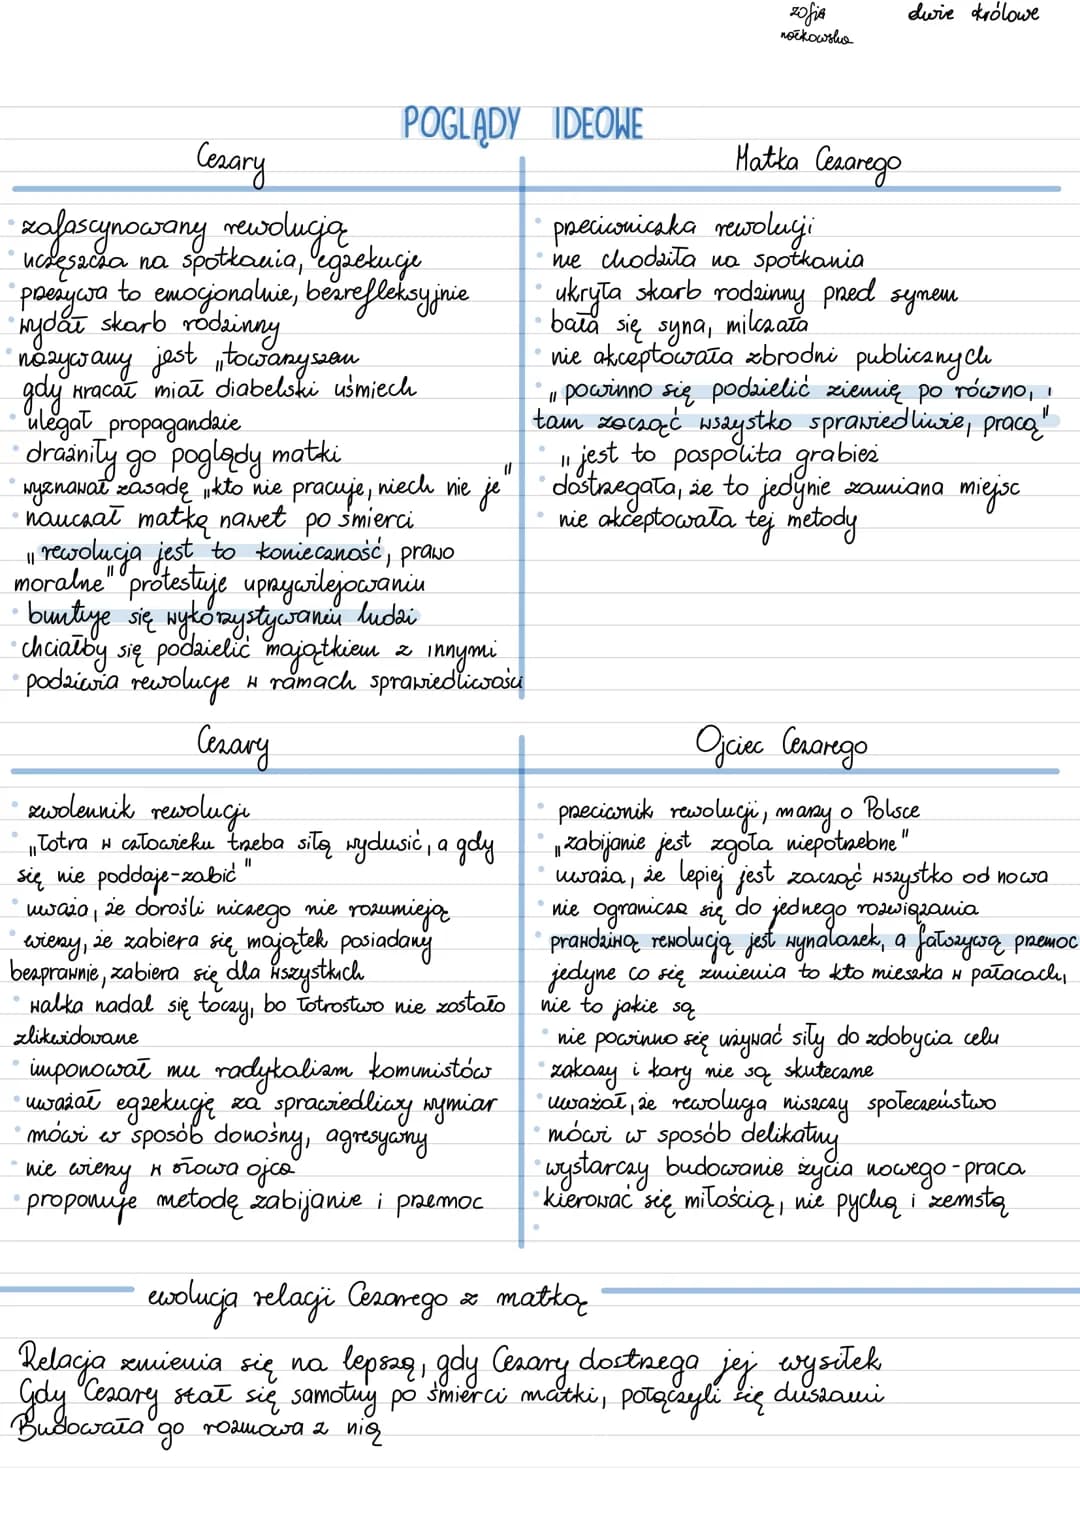 zofia dwie królowe
nałkowska
POGLĄDY IDEOWE
Cezary
zafascynowany rewolucją
uczęszcza na spotkania, egzekucje
przeżywa to emocjonalnie, bezrefleksyjnie
wydał skarb rodzinny
nazywany jest „towarzyszem
gdy wracał miał diabelski uśmiech
ulegał propagandzie
drażniły go poglądy matki
wyznawał zasadę „kto nie pracuje, niech nie je"
nauczał matkę nawet po śmierci
„rewolucja jest to konieczność, prawo
moralne" protestuje uprzywilejowaniu
buntuje się wykorzystywaniu ludzi
chciałby się podzielić majątkiem z innymi
podziwia rewolucje w ramach sprawiedliwości
Matka Cezarego
przeciwniczka rewolucji
nie chodziła na spotkania
ukryła skarb rodzinny przed synem
bała się syna, milczała
nie akceptowała zbrodni publicznych
„powinno się podzielić ziemię po równo, i
tam zacząć wszystko sprawiedliwie, pracą"
„jest to pospolita grabież
dostrzegała, że to jedynie zamiana miejsc
nie akceptowała tej metody
Cezary
zwolennik rewolucji
„Łotra w człowieku trzeba siłą wydusić, a gdy
się nie poddaje-zabić"
uważa, że dorośli niczego nie rozumieją
wierzy, że zabiera się majątek posiadany
bezprawnie, zabiera się dla wszystkich
walka nadal się toczy, bo łotrostwo nie zostało
zlikwidowane
imponował mu radykalizm komunistów
uważał egzekucję za sprawiedliwy wymiar
mówi w sposób donośny, agresywny
nie wierzy w słowa ojca
proponuje metodę zabijanie i przemoc
Ojciec Cezarego
przeciwnik rewolucji, marzy o Polsce
„zabijanie jest zgoła niepotrzebne"
uważa, że lepiej jest zacząć wszystko od nowa
nie ogranicza się do jednego rozwiązania
prawdziwą rewolucją jest wynalazek, a fałszywą przemoc
jedyne co się zmienia to kto mieszka w pałacach,
nie to jakie są
nie powinno się używać siły do zdobycia celu
zakazy i kary nie są skuteczne
uważał, że rewolucja niszczy społeczeństwo
mówi w sposób delikatny
wystarczy budowanie życia nowego-praca
kierować się miłością, nie pychą i zemstą
ewolucja relacji Cezarego z matką
Relacja zmienia się na lepszą, gdy Cezary dostrzega jej wysiłek
Gdy Cezary stał się samotny po śmierci matki, połączyli się duszami
Budowała go rozmowa z nią